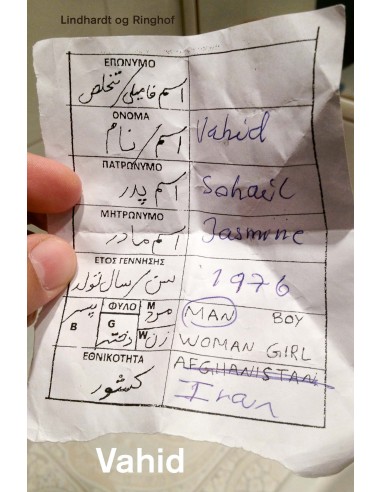 Lindhardt og Ringhof
ΕΠΩΝΥΜΟ
اسم فامیلی/تخلص
ΟΝΟΜΑ
اسم/نام
Vahid
ΠΑΤΡΩΝΥΜΟ
اسم پدر
Sohail
ΜΗΤΡΩΝΥΜΟ
اسم مادر
Jasmine
ΕΤΟΣ ΓΕΝΝΗΣΗΣ
سن/سال تولد
1976
پسر B
ΦΥΛΟ
M مرد
G دختر
W زن
MAN BOY
WOMAN GIRL
ΕΘΝΙΚΟΤΗΤΑ
کشور
AFGHANISTAN
Iran
Vahid